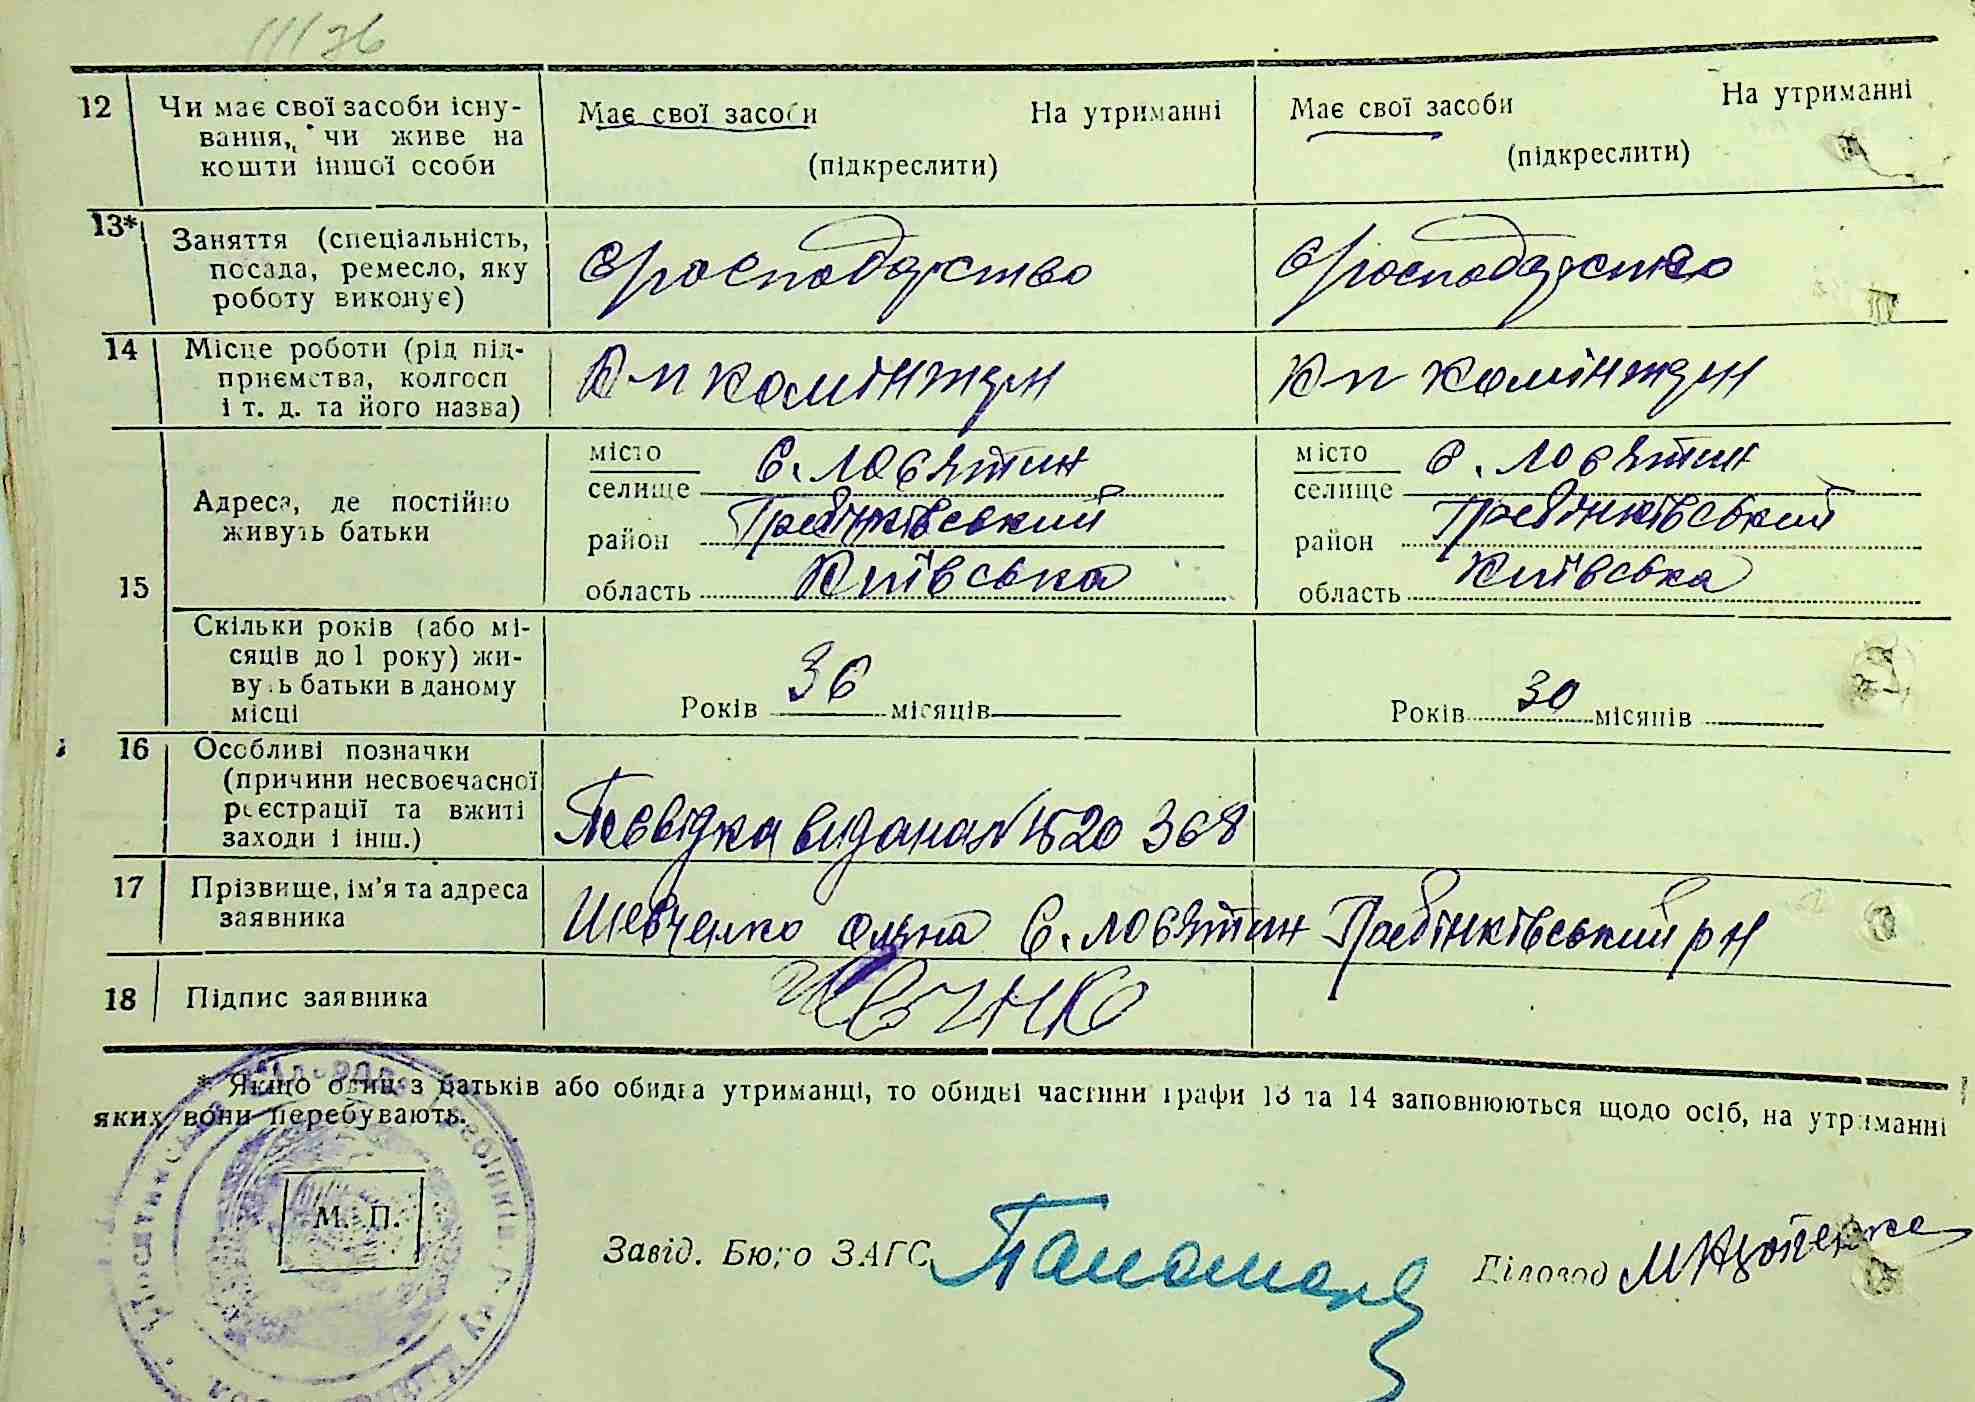 12 Чи має свої засоби існу-
вання, чи живе на
кошти іншої особи
Має свої засоби На утриманні
(підкреслити)
Має свої засоби На утриманні
(підкреслити)
13* Заняття (спеціальність,
посада, ремесло, яку
роботу виконує)
господарство
господарство
14 Місце роботи (рід під-
приємства, колгосп
і т. д. та його назва)
к-п комінтерн
кп комінтерн
15
Адреса, де постійно
живуть батьки
місто
селище с. Лосятин
район Гребінківський
область Київська
місто
селище с. Лосятин
район Гребінківський
область Київська
Скільки років (або мі-
сяців до 1 року) жи-
вуть батьки в даному
місці
Років 36 місяців
Років 30 місяців
16 Особливі позначки
(причини несвоєчасної
реєстрації та вжиті
заходи і інш.)
Посвідка видана № 1520 368
17 Прізвище, ім'я та адреса
заявника
Шевченко Олена с. Лосятин Гребінківський р н
18 Підпис заявника
* Якщо один з батьків або обидва утриманці, то обидві частини графи 13 та 14 заповнюються щодо осіб, на утриманні
яких вони перебувають.
М. П.
Завід. Бюро ЗАГС
Діловод